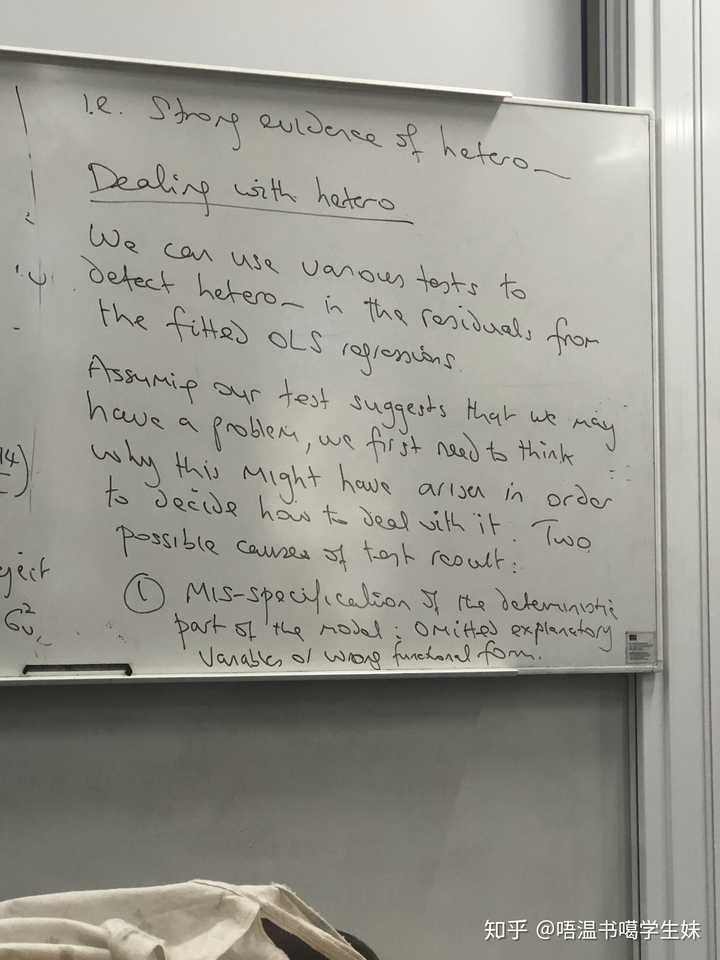 i.e. Strong evidence of hetero—
Dealing with hetero
We can use various tests to
detect hetero— in the residuals from
the fitted OLS regressions.
Assuming our test suggests that we may
have a problem, we first need to think
why this might have arisen in order
to decide how to deal with it. Two
possible causes of test result:
① Mis-specification of the deterministic
part of the model: omitted explanatory
variables or wrong functional form.
14)
eject
知乎 @唔温书噶学生妹